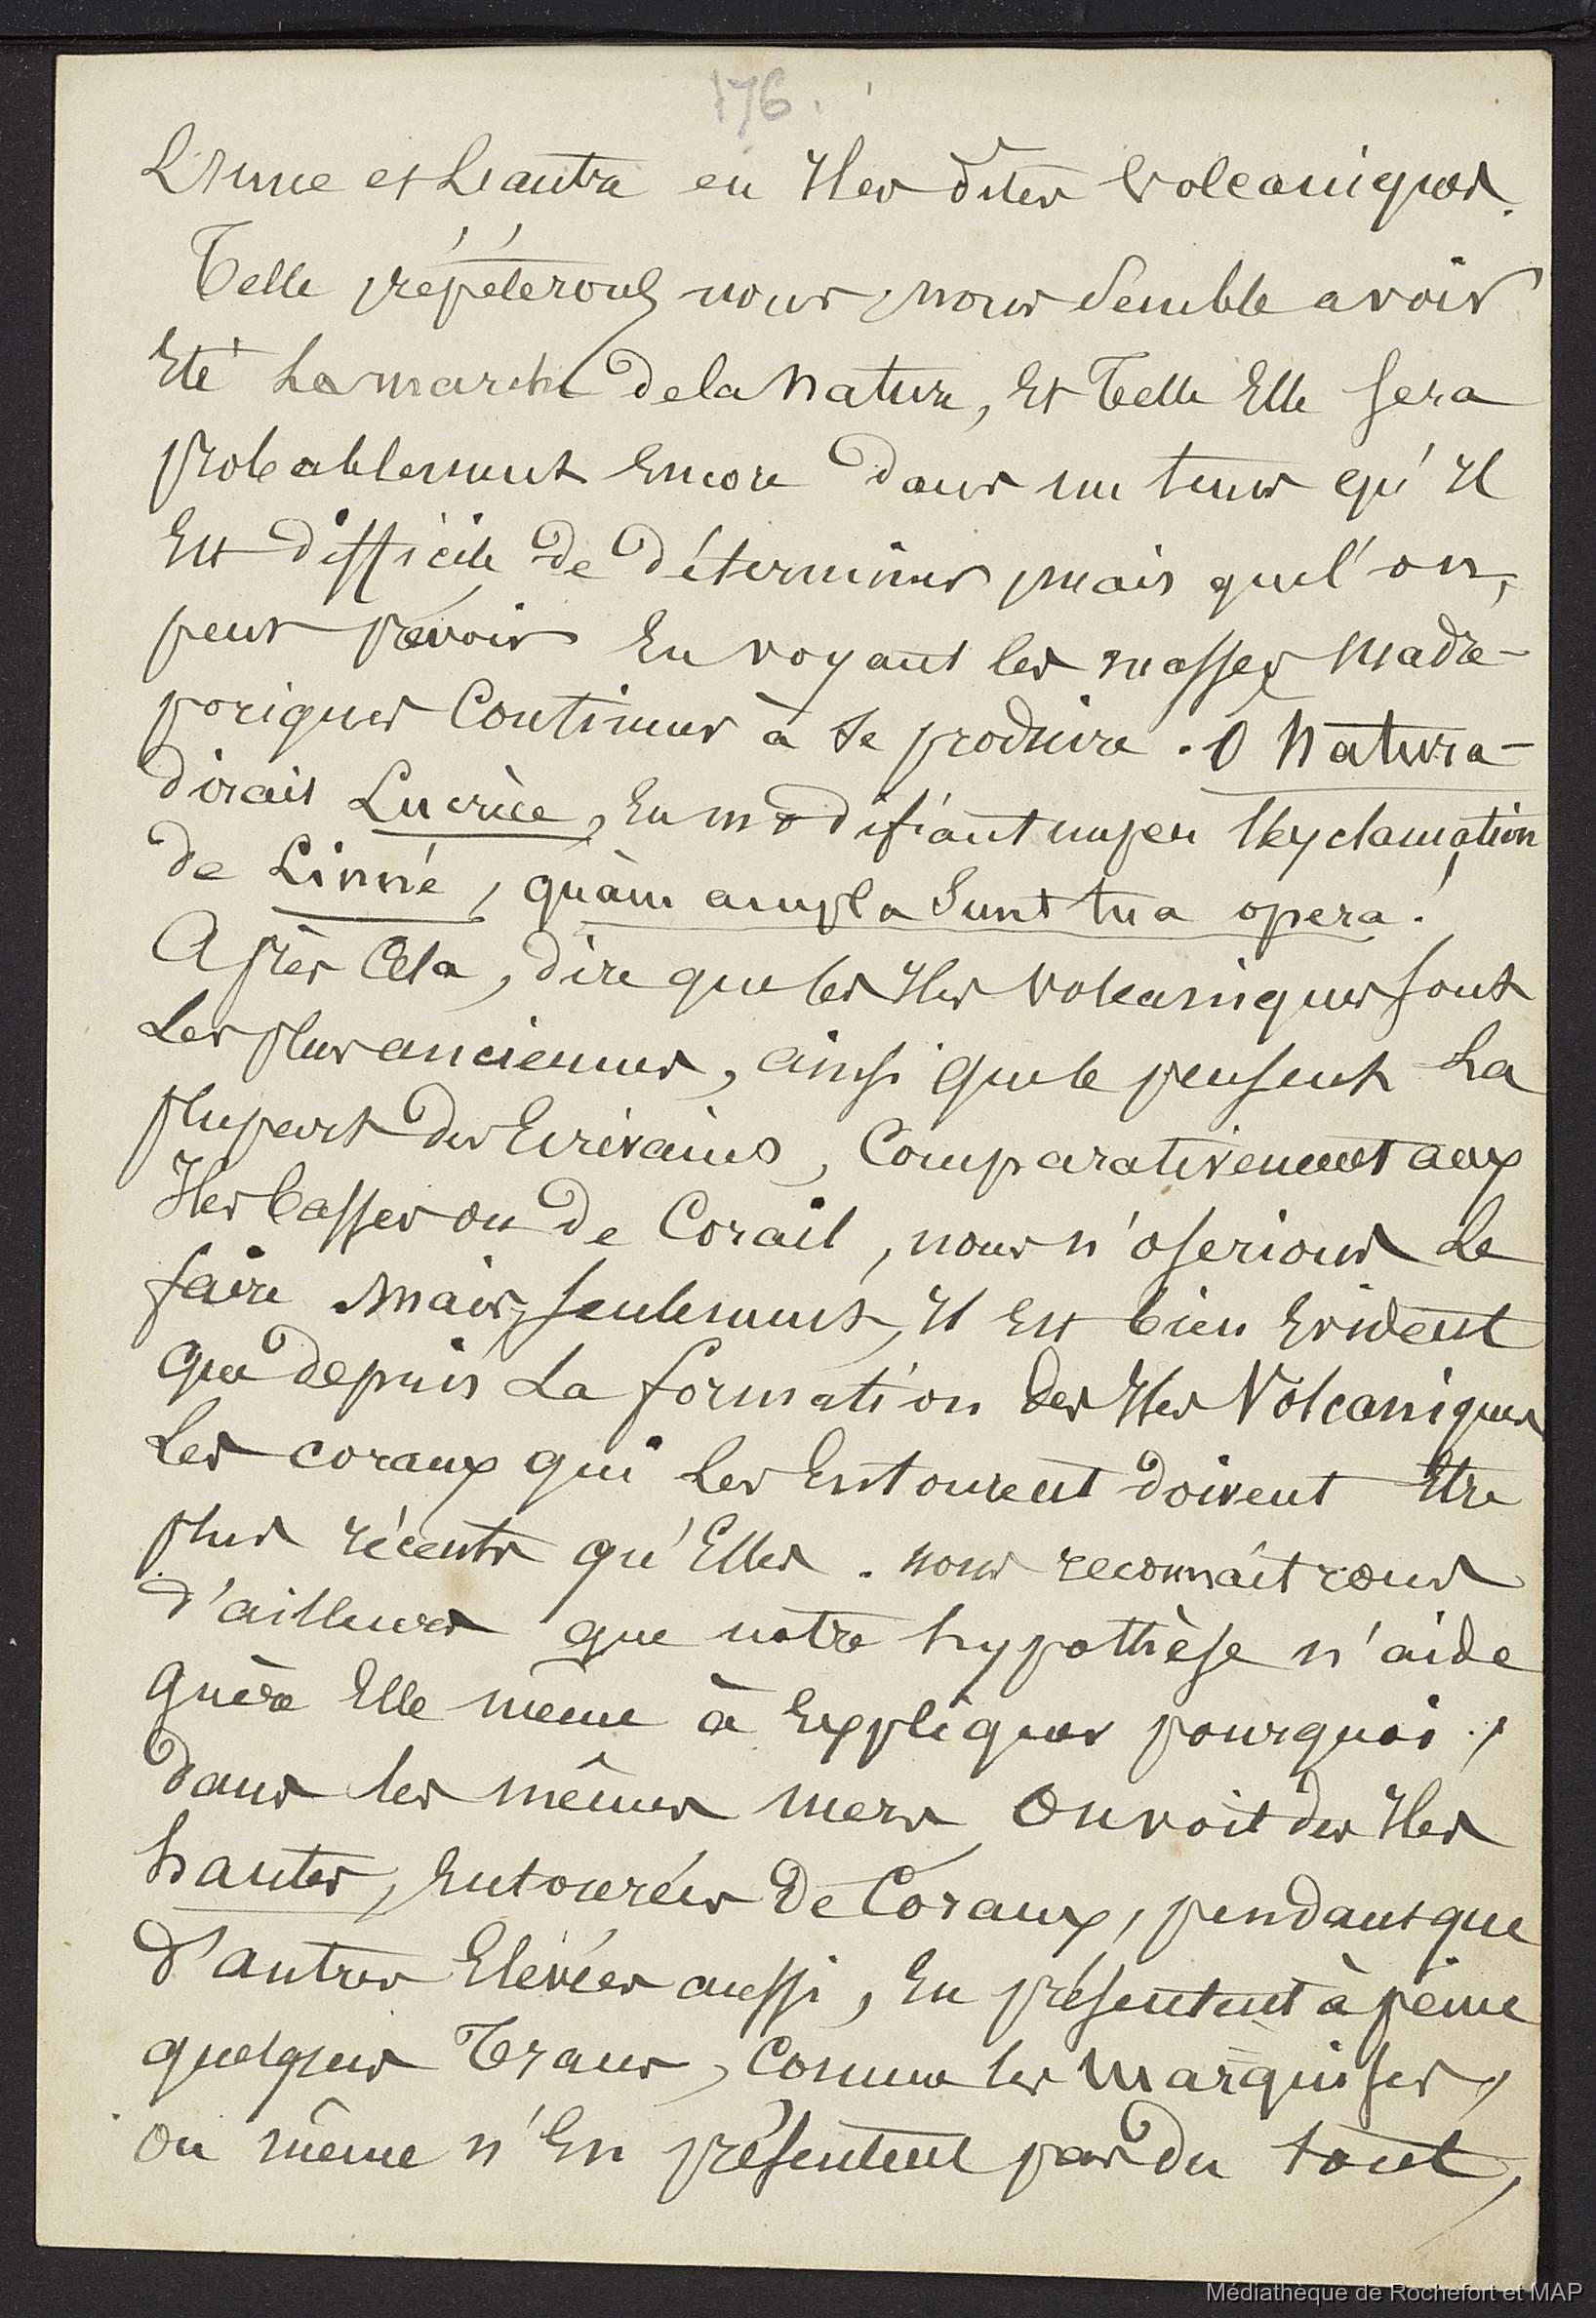 176.
L'Une et L'autre en Iles dites Volcaniques.
Telle répéterons nous, nous Semble avoir
Eté La marche de la Nature, Et Telle Elle Sera
probablement Encore dans un tems qu'Il
Est difficile de déterminer, mais que l'on,
peut prévoir En voyant les masses Madré-
poriques Continuer à Se produire. O Natura-
dirait Lucrèce, En modifiant un peu l'Exclamation
de Linné, quàm ampla Sunt tua opera!
Après Cela, dire que les Iles Volcaniques sont
Les plus anciennes, ainsi que le pensent La
plupart des Ecrivains, Comparativement aux
Iles basses ou de Corail, nous n'oserions Le
faire Mais, seulement, Il Est bien Evident
que depuis La formation des Iles Volcaniques
Les coraux qui Les Entourent doivent Etre
plus récents qu'Elles. nous reconnaîtrons
d'ailleurs que notre hypothèse n'aide
guère Elle même à Expliquer pourquoi,
dans les mêmes mers On voit des Iles
hautes, Entourées de Coraux, pendant que
d'autres Elevées aussi, En présentent à peine
quelques Traces, Comme les Marquises,
ou même n'En présentent pas du tout,
Médiathèque de Rochefort et MAP